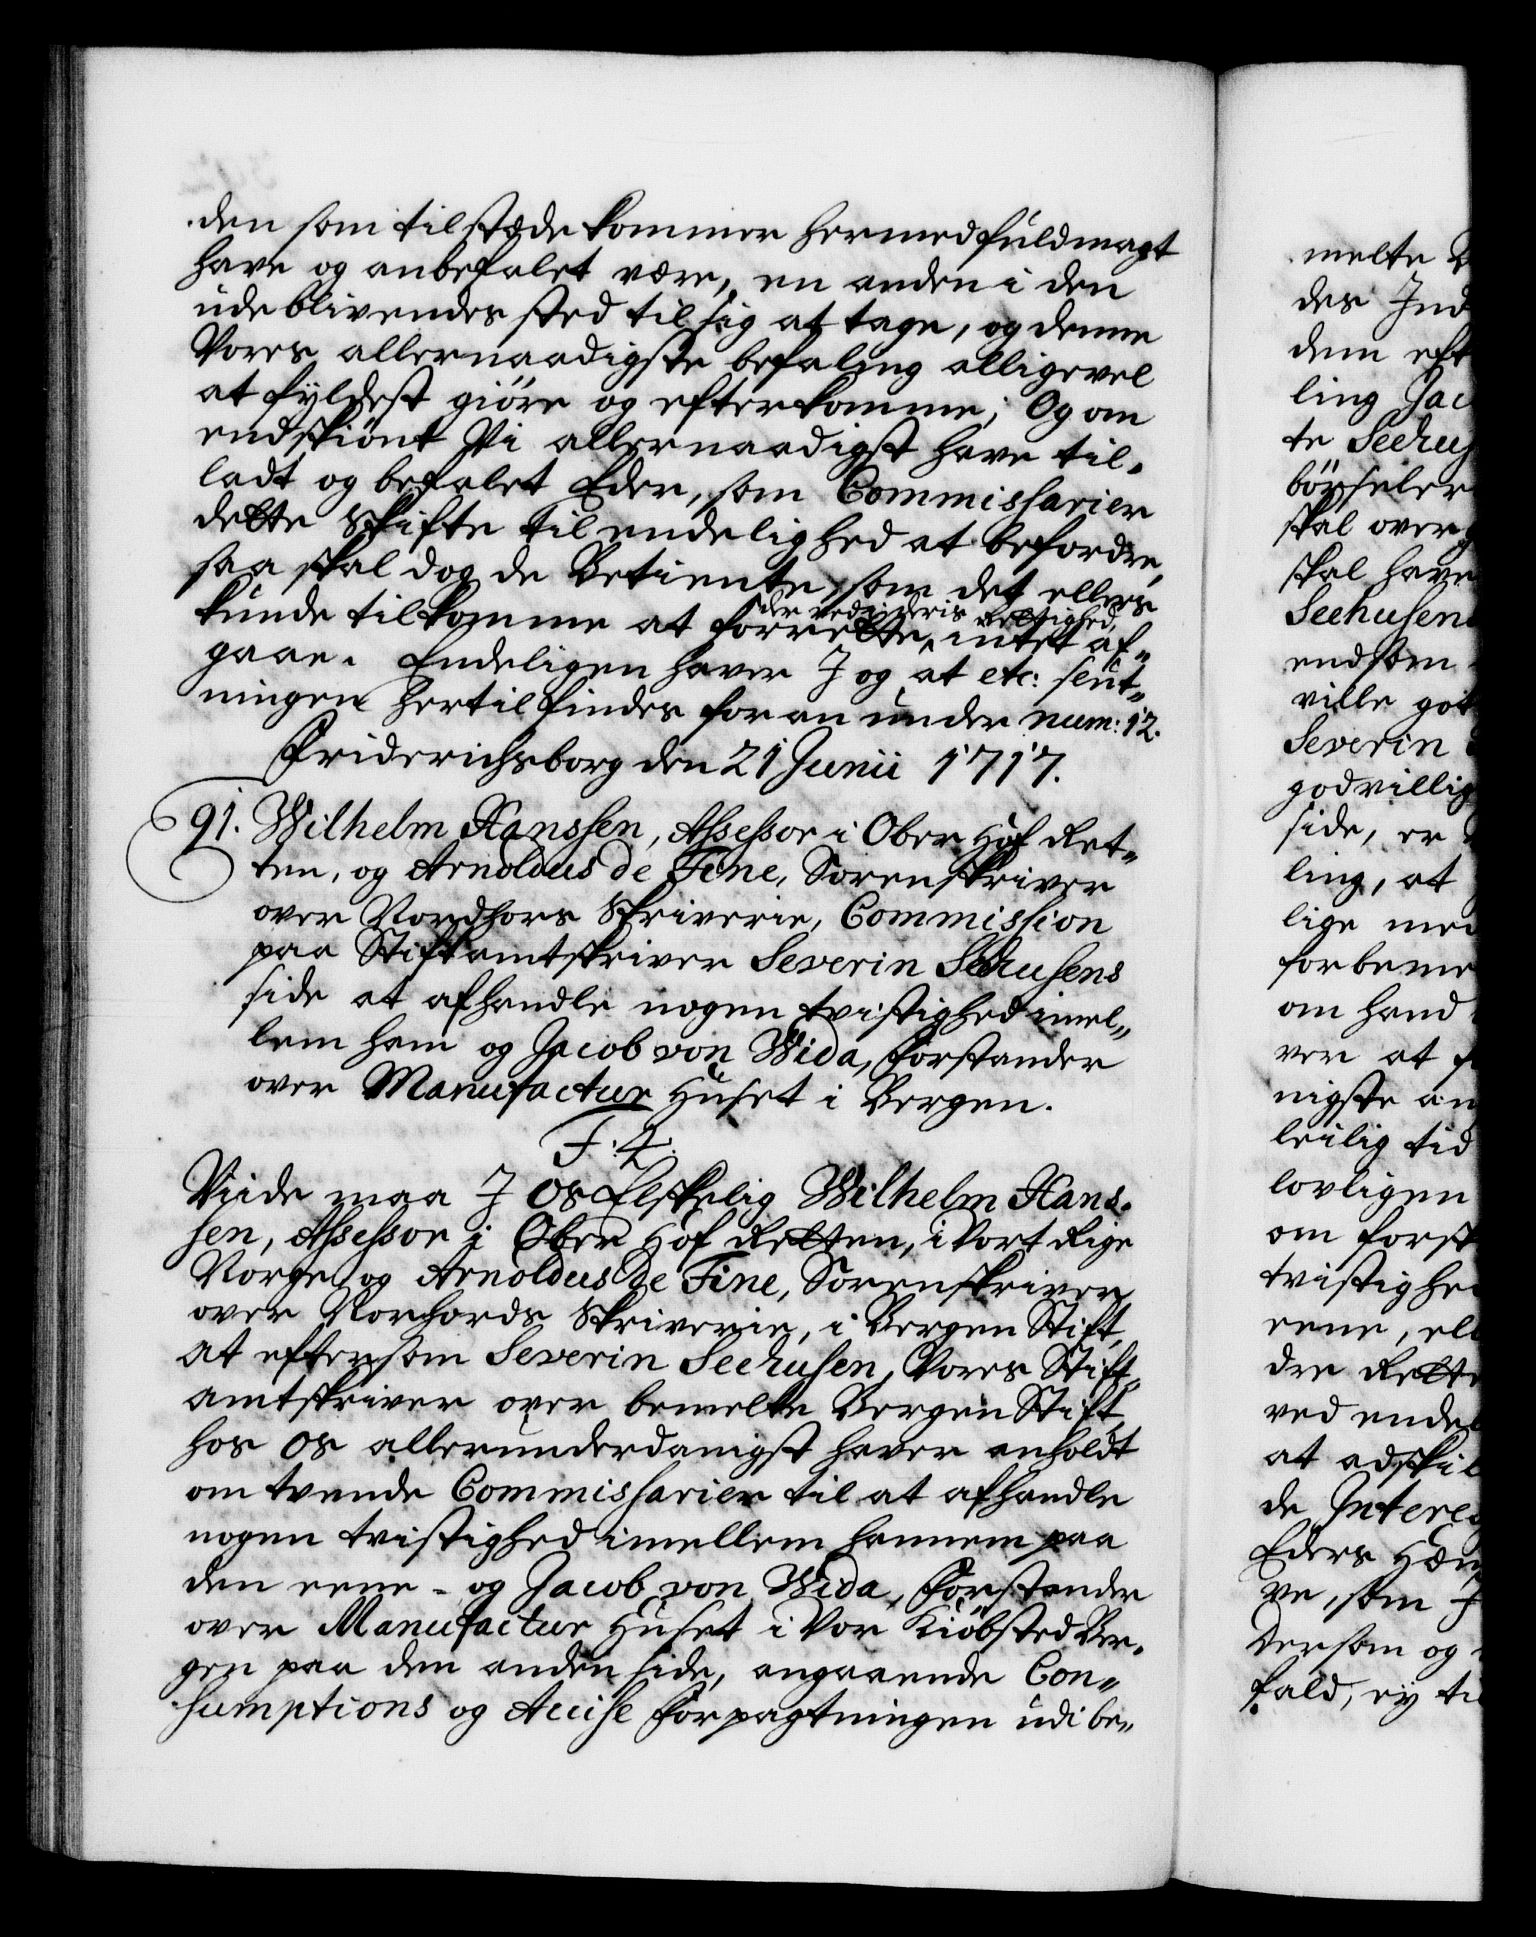 den som tilstæde kommer hermed fuldmagt
have og anbefalet være, en anden i den
udeblivendes sted til sig at tage, og denne
Vores allernaadigste befaling alligevel
at fyldest giöre og efterkomme; Og om
endskiönt Vi allernaadigst have til-
ladt og befalet Eder, som Commissarier
dette Skifte til endelighed at befordre,
saa skal dog de Betiente, som det ellers
der ved deris Rettighed,
kunde tilkomme at forrette, intet af-
gaae. Endeligen haver J og at etc: slut-
ningen hertil findes foran under num: 12.
Friderichsborg den 21 Junii 1717.
91. Wilhelm Hanssen, Assessor i Ober Hof Ret-
ten, og Arnoldus de Fine, Sorenskriver
over Nordhors Skriverie, Commission
paa Stiftamtskriver Severin Seehusens
side at afhandle nogen tvistighed imel-
lem ham og Jacob von Wida, Forstander
over Manufactur Huset i Bergen.
F: 4.
Viide maa J Os Elskelig Wilhelm Hans-
sen, Assessor i Ober Hof Retten, i Vort Rige
Norge, og Arnoldus de Fine, Sorenskriver
over Norhords Skriverie, i Bergen Stift,
at eftersom Severin Seehusen, Vores Stift-
amtskriver over bemelte Bergen Stift,
hos Os allerunderdanigst haver anholdt
om tvende Commissarier til at afhandle
nogen tvistighed imellem hannem paa
den eene - og Jacob von Wida, Forstander
over Manufactur Huset i Vor Kiöbsted Ber-
gen paa den anden side, angaaende Con-
sumptions og Accise Forpagtningen udi be-
melte
des Ind
dem eft
ling Jac
te Seehus
skal over
skal have
Seehusen
endsten
ville god
Severin
godvillig
side, er
ling, at
lige med
forbeme
om hand
ver at
nigste an
leilig tid
lovligen
om forst
tvistighe
eene, ell
dre Rette
ved endel
at adskil
de Interes
Eders Hæn
ve, som J
Dersom og
fald, ey til